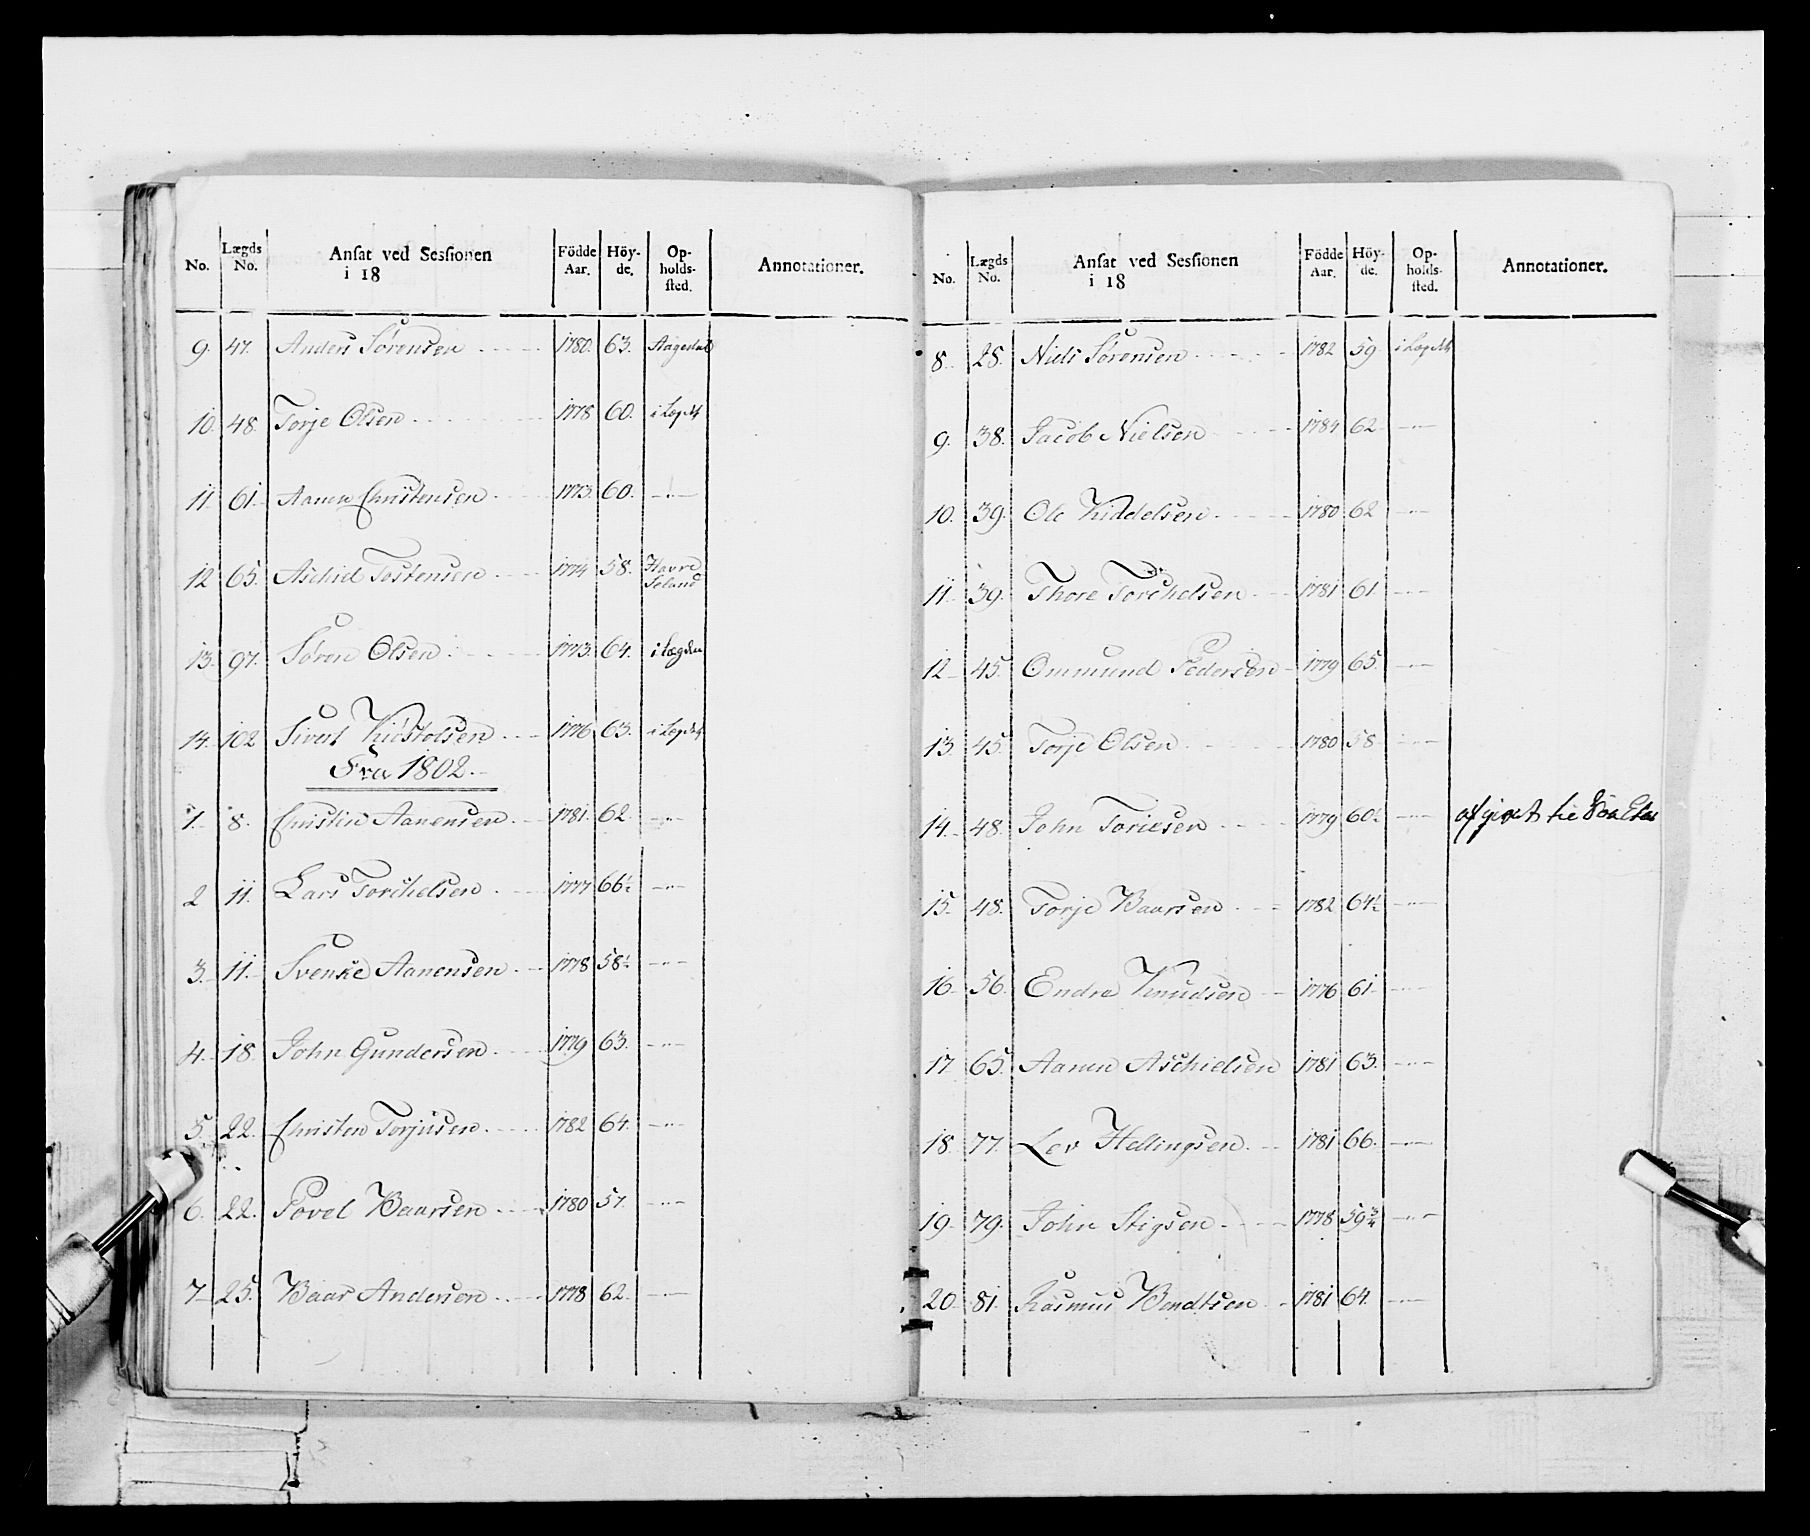 No. Lægds No. Ansat ved Sessionen i 18 Födde Aar. Höy-de. Op-holds-sted. Annotationer.
9. 47. Anders Sörensen 1780. 63. Aagedal
10. 48. Torje Olsen 1778 60. i Lægdet
11. 61. Aanen Christensen 1773. 60. -"-
12 65. Aschid Tostensen 1774 58.
13. 97. Sören Olsen 1773. 64. i Lægden
14. 102 Sivert Kiöstolsen 1776 63. i Lægdet
Fra 1802.
1. 8. Christen Aanensen 1781. 62. -"-
2 11. Lars Torchelsen 1777 66½ -"-
3. 11. Svenke Aanensen 1778 58½ -"-
4. 18. John Gundersen 1779 63. -"-
5. 22. Christen Torjusen 1782 64. -"-
6. 22. Povel Baarsen 1780 57. -"-
7. 25. Baar Andersen 1778 62. -"-
No. Lægds No. Ansat ved Sessionen i 18 Födde Aar. Höy-de. Op-holds-sted. Annotationer.
8. 28. Niels Sörensen 1782 59 i Lægdet
9. 38. Jacob Nielsen 1784 62 -"-
10. 39. Ole Kiddelsen 1780 62 -"-
11. 39. Thore Torchelsen 1781 61 -"-
12 45. Ommund Pedersen 1779 65. -"-
13 45. Torje Olsen 1780 58 -"-
14. 48. John Toriesen 1779 60½ -"- afgivet til
15. 48. Torje Baarsen 1782 64½ -"-
16. 56. Endre Knudsen 1776 61 -"-
17. 65. Aanen Aschielsen 1781 63. -"-
18. 77. Lev Hellingsen 1781 66. -"-
19. 79. John Stigsen 1778 59¾ -"-
20. 81. Rasmus Bendtsen 1781 64. -"-